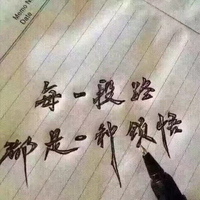 Memo No.
Data
每一段路
都是一种领悟